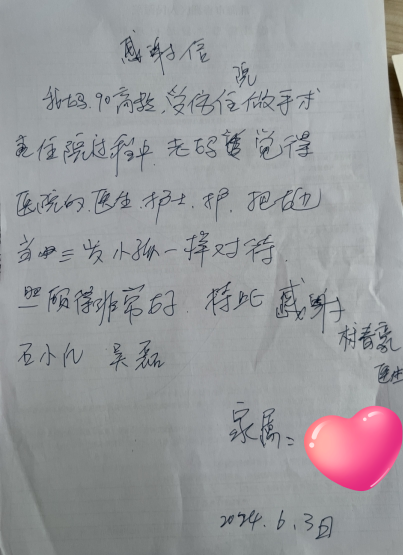 感谢信
我妈.90高龄.受伤住院做手术
在住院过程中.老妈觉得
医院的医生.护士.护.把她
当口三岁小孩一样对待.
照顾得非常好.特此感谢
石小凡 吴磊 林春亮
医生
家属:
2024.6.3日